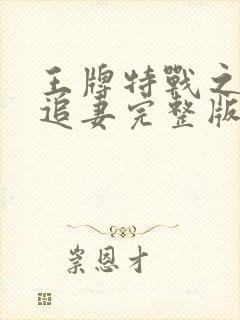 王牌特戰之
追妻完整版
崇恩才